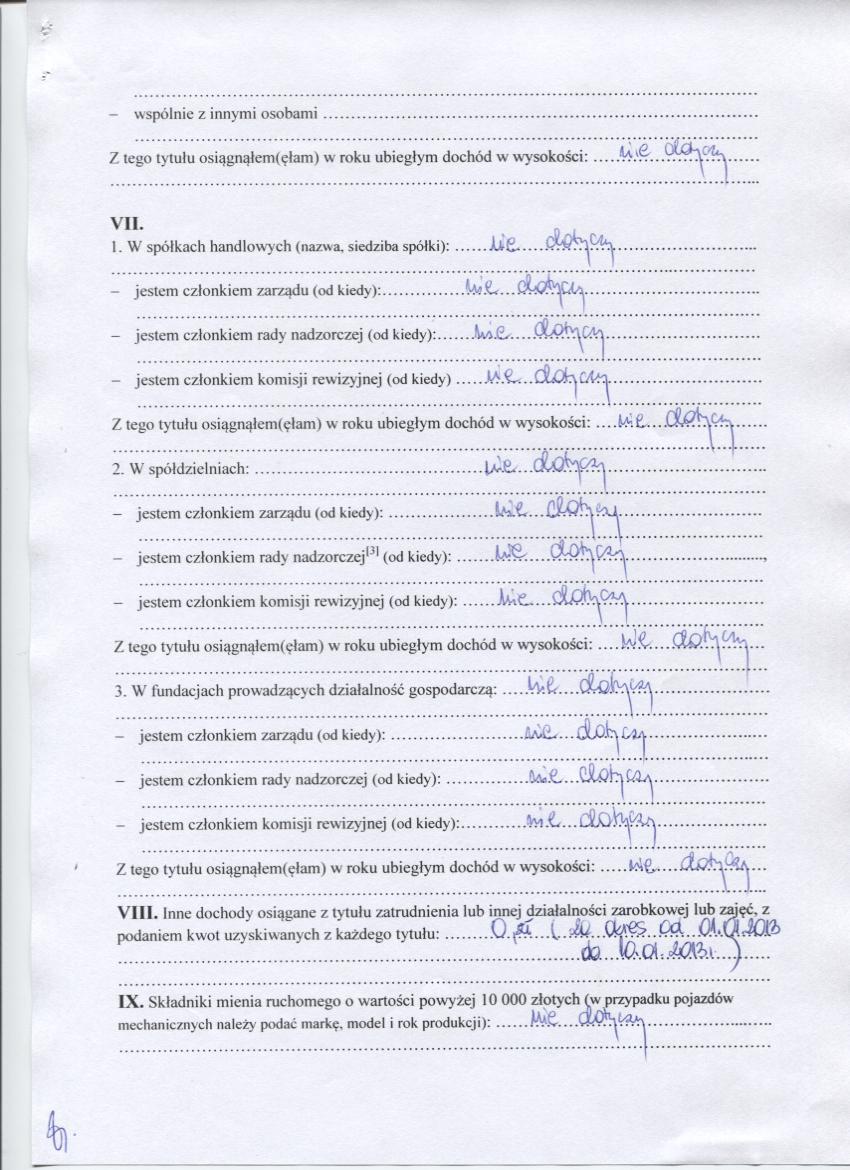 – wspólnie z innymi osobami
Z tego tytułu osiągnąłem(ęłam) w roku ubiegłym dochód w wysokości: nie dotyczy
VII.
1. W spółkach handlowych (nazwa, siedziba spółki): nie dotyczy
– jestem członkiem zarządu (od kiedy): nie dotyczy
– jestem członkiem rady nadzorczej (od kiedy): nie dotyczy
– jestem członkiem komisji rewizyjnej (od kiedy) nie dotyczy
Z tego tytułu osiągnąłem(ęłam) w roku ubiegłym dochód w wysokości: nie dotyczy
2. W spółdzielniach: nie dotyczy
– jestem członkiem zarządu (od kiedy): nie dotyczy
– jestem członkiem rady nadzorczej[3] (od kiedy): nie dotyczy
– jestem członkiem komisji rewizyjnej (od kiedy): nie dotyczy
Z tego tytułu osiągnąłem(ęłam) w roku ubiegłym dochód w wysokości: nie dotyczy
3. W fundacjach prowadzących działalność gospodarczą: nie dotyczy
– jestem członkiem zarządu (od kiedy): nie dotyczy
– jestem członkiem rady nadzorczej (od kiedy): nie dotyczy
– jestem członkiem komisji rewizyjnej (od kiedy): nie dotyczy
Z tego tytułu osiągnąłem(ęłam) w roku ubiegłym dochód w wysokości: nie dotyczy
VIII. Inne dochody osiągane z tytułu zatrudnienia lub innej działalności zarobkowej lub zajęć, z
podaniem kwot uzyskiwanych z każdego tytułu: 0 zł (za okres od 01.01.2013
do 10.01.2013r.)
IX. Składniki mienia ruchomego o wartości powyżej 10 000 złotych (w przypadku pojazdów
mechanicznych należy podać markę, model i rok produkcji): nie dotyczy